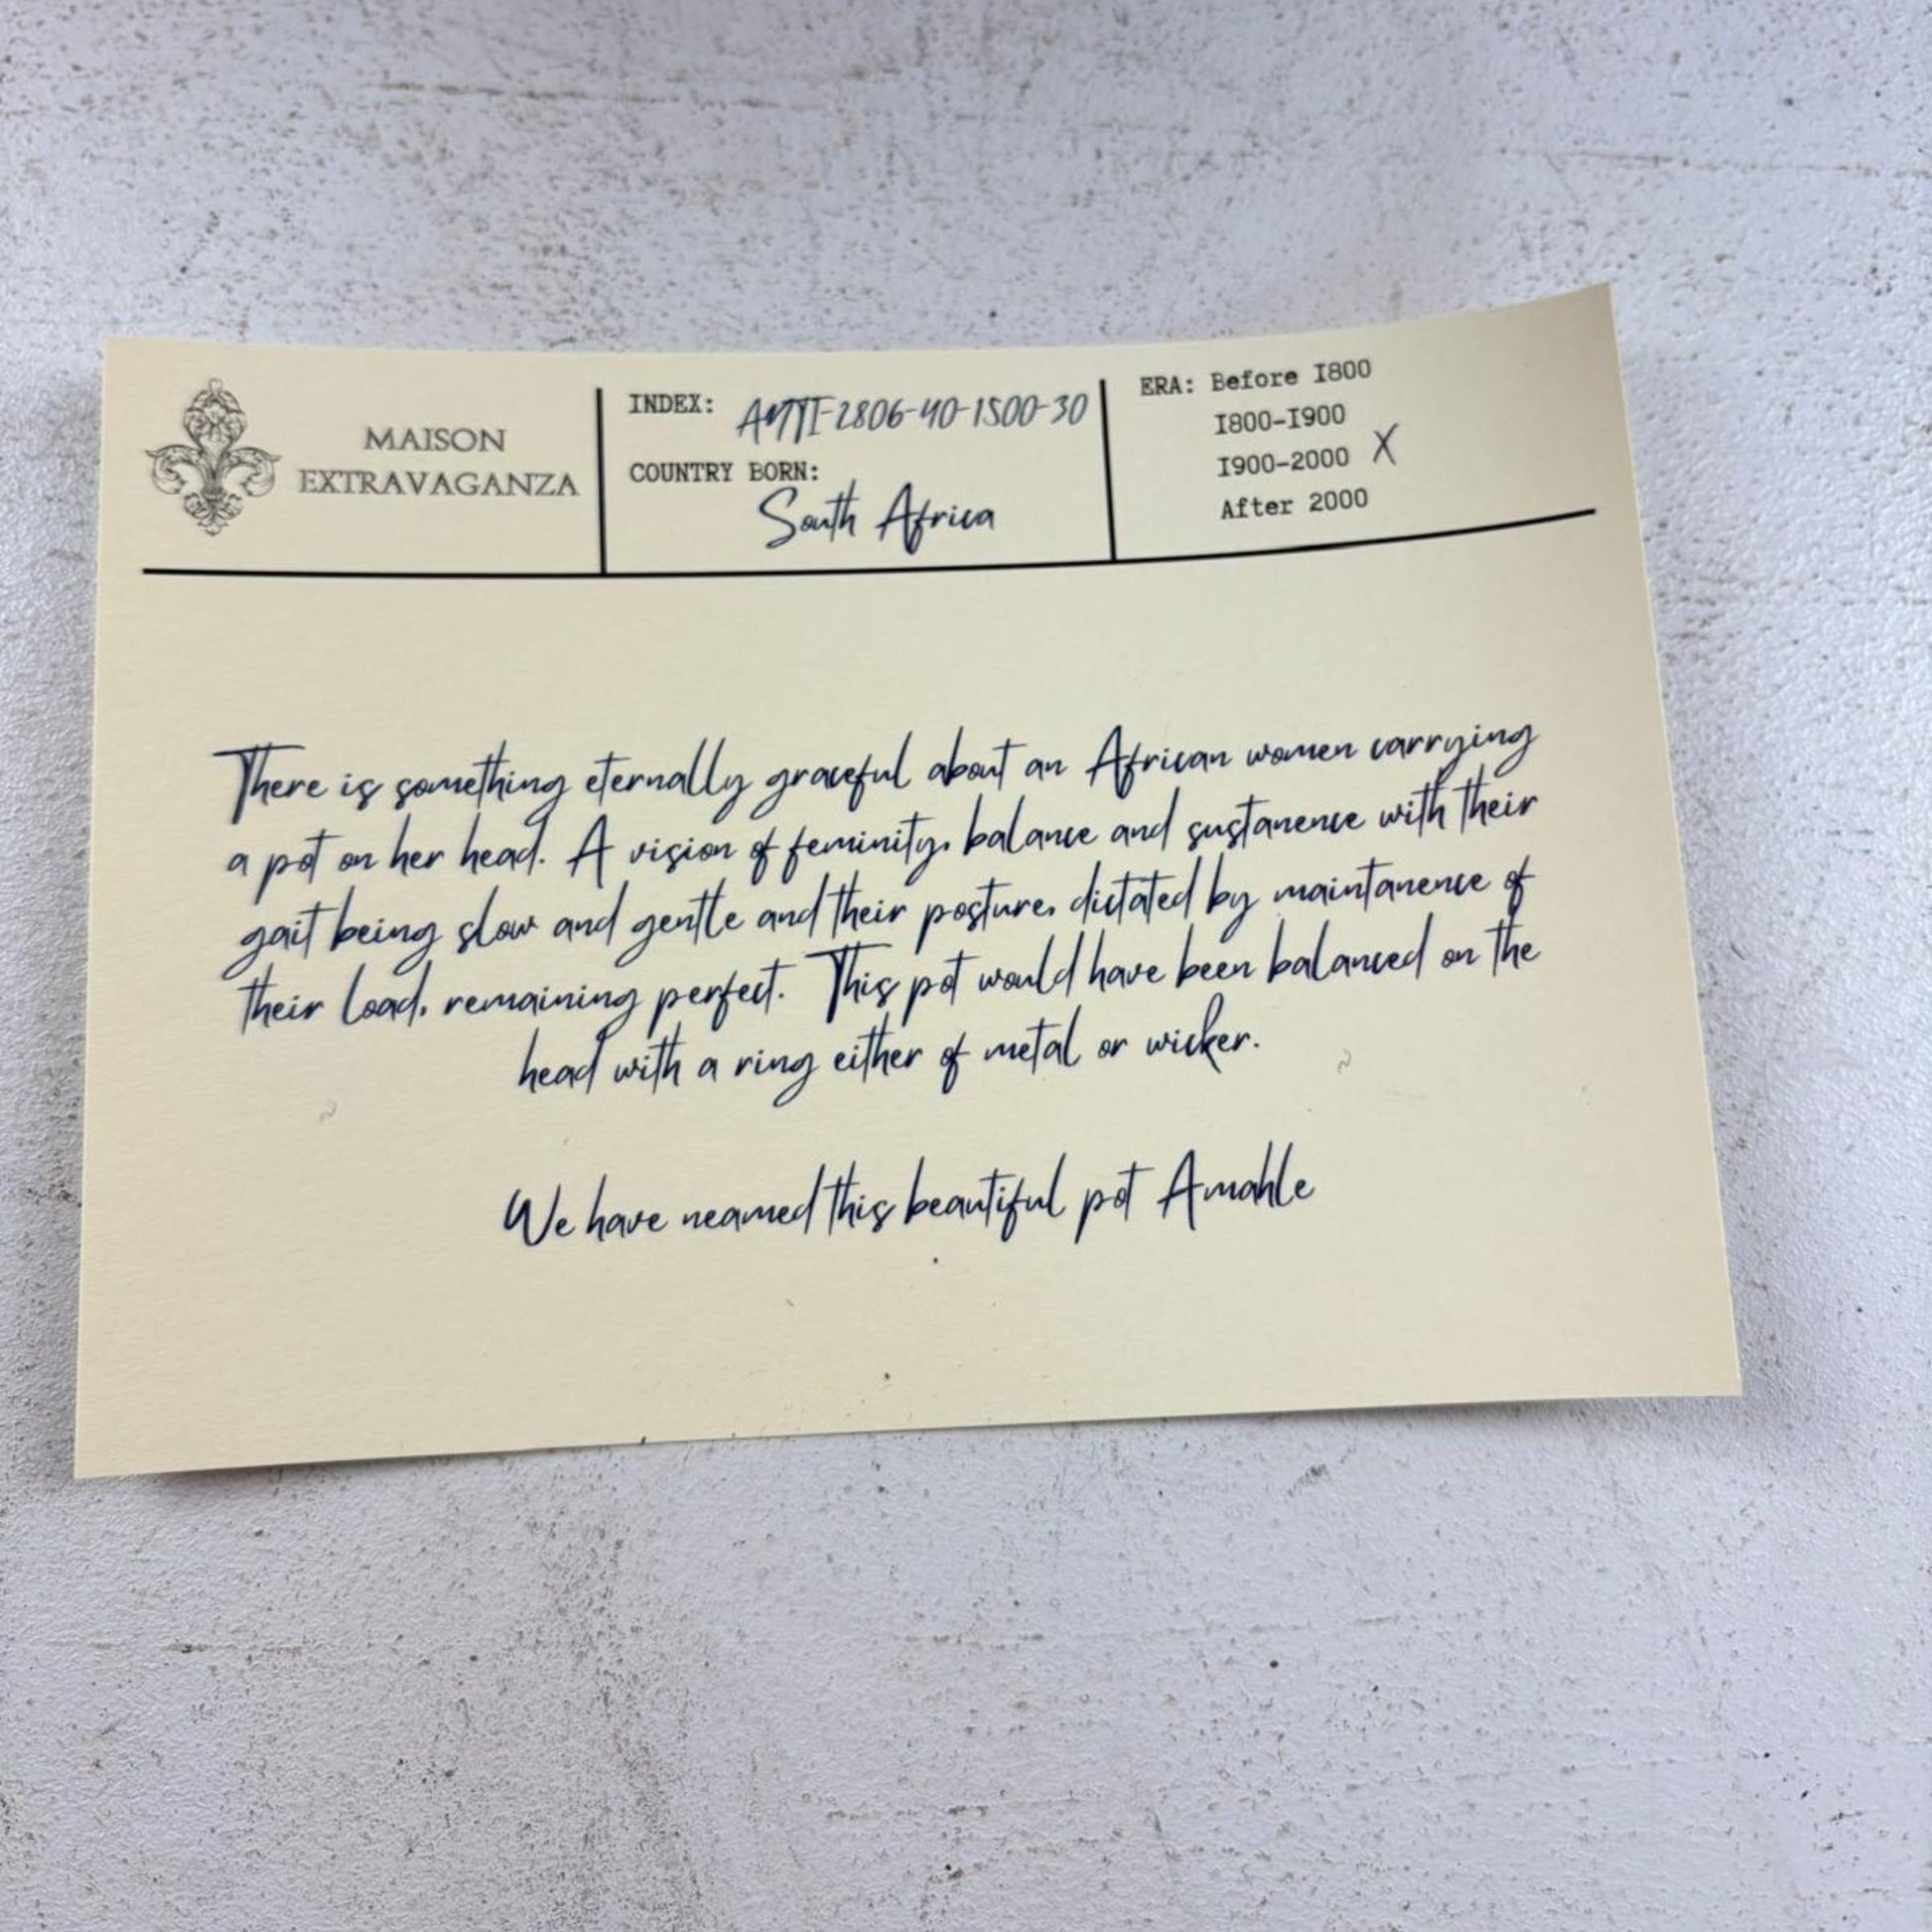 MAISON
EXTRAVAGANZA
INDEX: ANTI-2806-40-1500-30
COUNTRY BORN:
South Africa
ERA: Before I800
I800-I900
I900-2000 X
After 2000
There is something eternally graceful about an African women carrying
a pot on her head. A vision of feminity, balance and sustanence with their
gait being slow and gentle and their posture, dictated by maintanence of
their load, remaining perfect. This pot would have been balanced on the
head with a ring either of metal or wicker.
We have neamed this beautiful pot Amahle